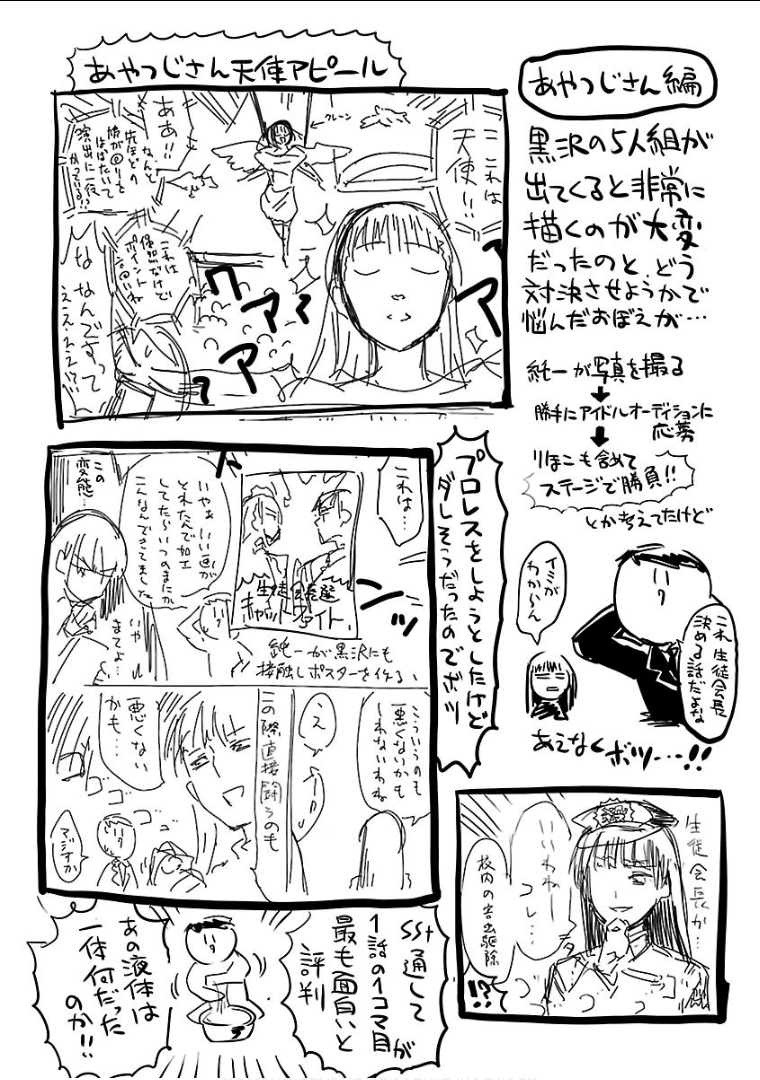 あやつじさん編
黒沢の5人組が
出てくると非常に
描くのが大変
だったのと、どう
対決させようかで
悩んだおぼえが…
純一が写真を撮る
勝手にアイドルオーディションに
応募
りほこも含めて
ステージで勝負!!
とか考えてたけど
イミが
わか〜ん
これ生徒会長
決める話だよな
あえなくボツ…!!
あやつじさん天使アピール
こ これは
天使!!
クレーン
ああ!!
なんと
先生どの
演出に一役
かっている!?
これは
ポイント
な なんですって
ええええ!?
ワァァァ
プロレスをしようとしたけど
ダレそうだったのでボツ
これは…
生徒会長選
キャットファイト
いやぁ いい画が
とれたんで加工
してたらいつのまにか
こんなんできてました
この
変態…
いや
まてよ…
純一が黒沢にも
接触しポスターを作る
こういうのも
悪くないかも
しれないわね
え
この際直接闘うのも
悪くない
かも…
ゴゴゴ
マジすか
生徒会長か…
いいわね…
コレ…
校内の害虫駆除
!?
SS+通して
1話の1コマ目が
最も面白いと
評判
あの液体は
一体何だった
のか!!